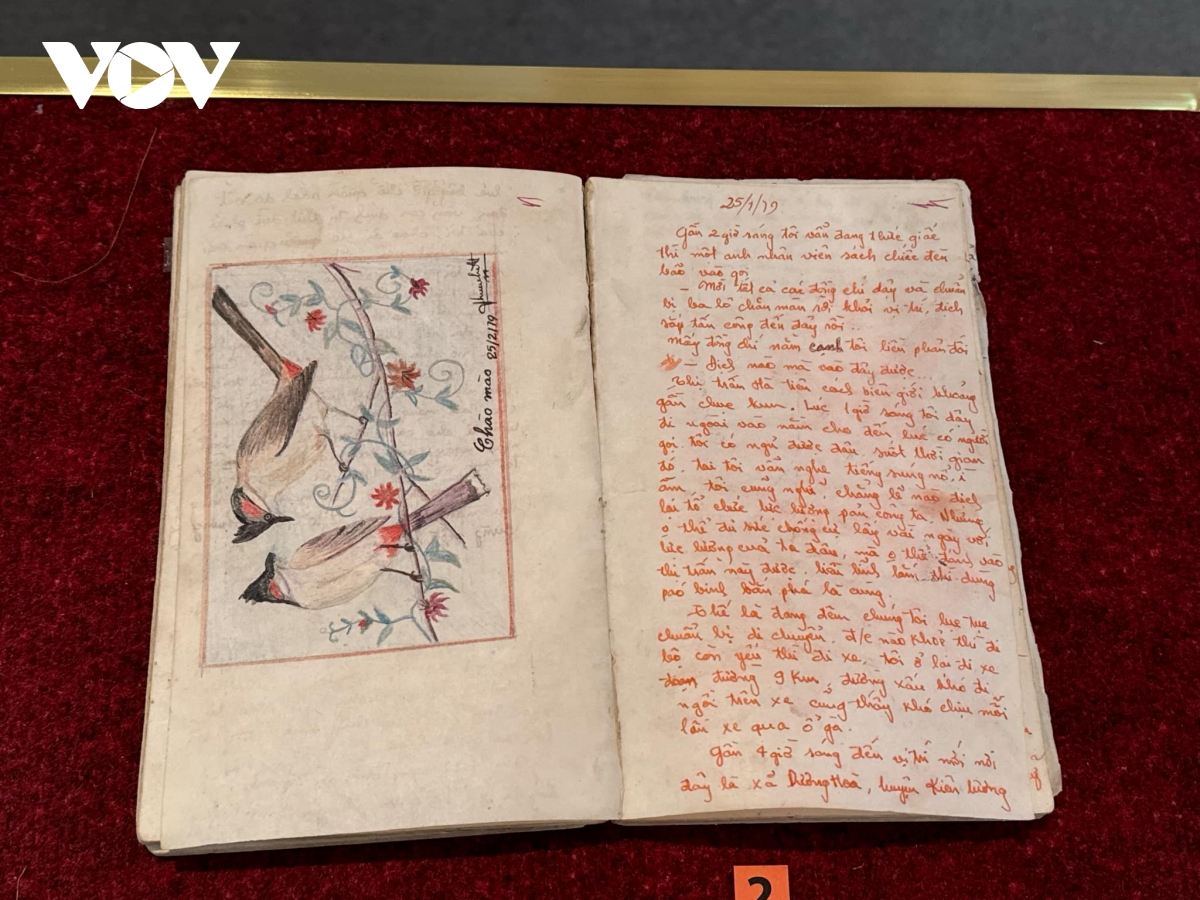 VOV
Chào mào 25/2/79
25/1/79
Gần 2 giờ sáng tôi vẫn đang thức giấc
thì một anh nuân viên sách chiếc đèn
bão vào gọi
- Mời tất cả các đồng chí dậy và chuẩn
bị ba lô chăn màn rời khỏi vị trí, địch
sắp tấn công đến đây rồi...
Mấy đồng chí nằm cạnh tôi liền phản đối
- Địch nào mà vào đây được...
Thị trấn Hà Tiên cách biên giới khoảng
gần chục km. Lúc 1 giờ sáng tôi dậy
đi ngoài vào nằm cho đến lúc có người
gọi. tôi có ngủ được đâu. suốt thời gian
đó, tai tôi vẫn nghe tiếng súng nổ, ì
ầm, tôi cũng nghĩ, chẳng lẽ nào địch
lại tổ chức lực lượng phản công ta. Nhưng
thể đủ sức chống cự lấy vài ngày với
lực lượng của ta đâu, mà thể đánh vào
thị trấn này được, liều lĩnh lắm thì dùng
pháo binh bắn phá là cùng.
Thế là đang đêm chúng tôi lục tục
chuẩn bị di chuyển. đ/c nào khỏe thì đi
bộ còn yếu thì đi xe, tôi ở lại đi xe
đoạn đường 9 km, đường xấu khó đi
ngồi trên xe cũng thấy khó chịu mỗi
lần xe qua ổ gà.
Gần 4 giờ sáng đến vị trí mới nơi
đây là xã Dương Hoà, huyện Kiên Lương
2